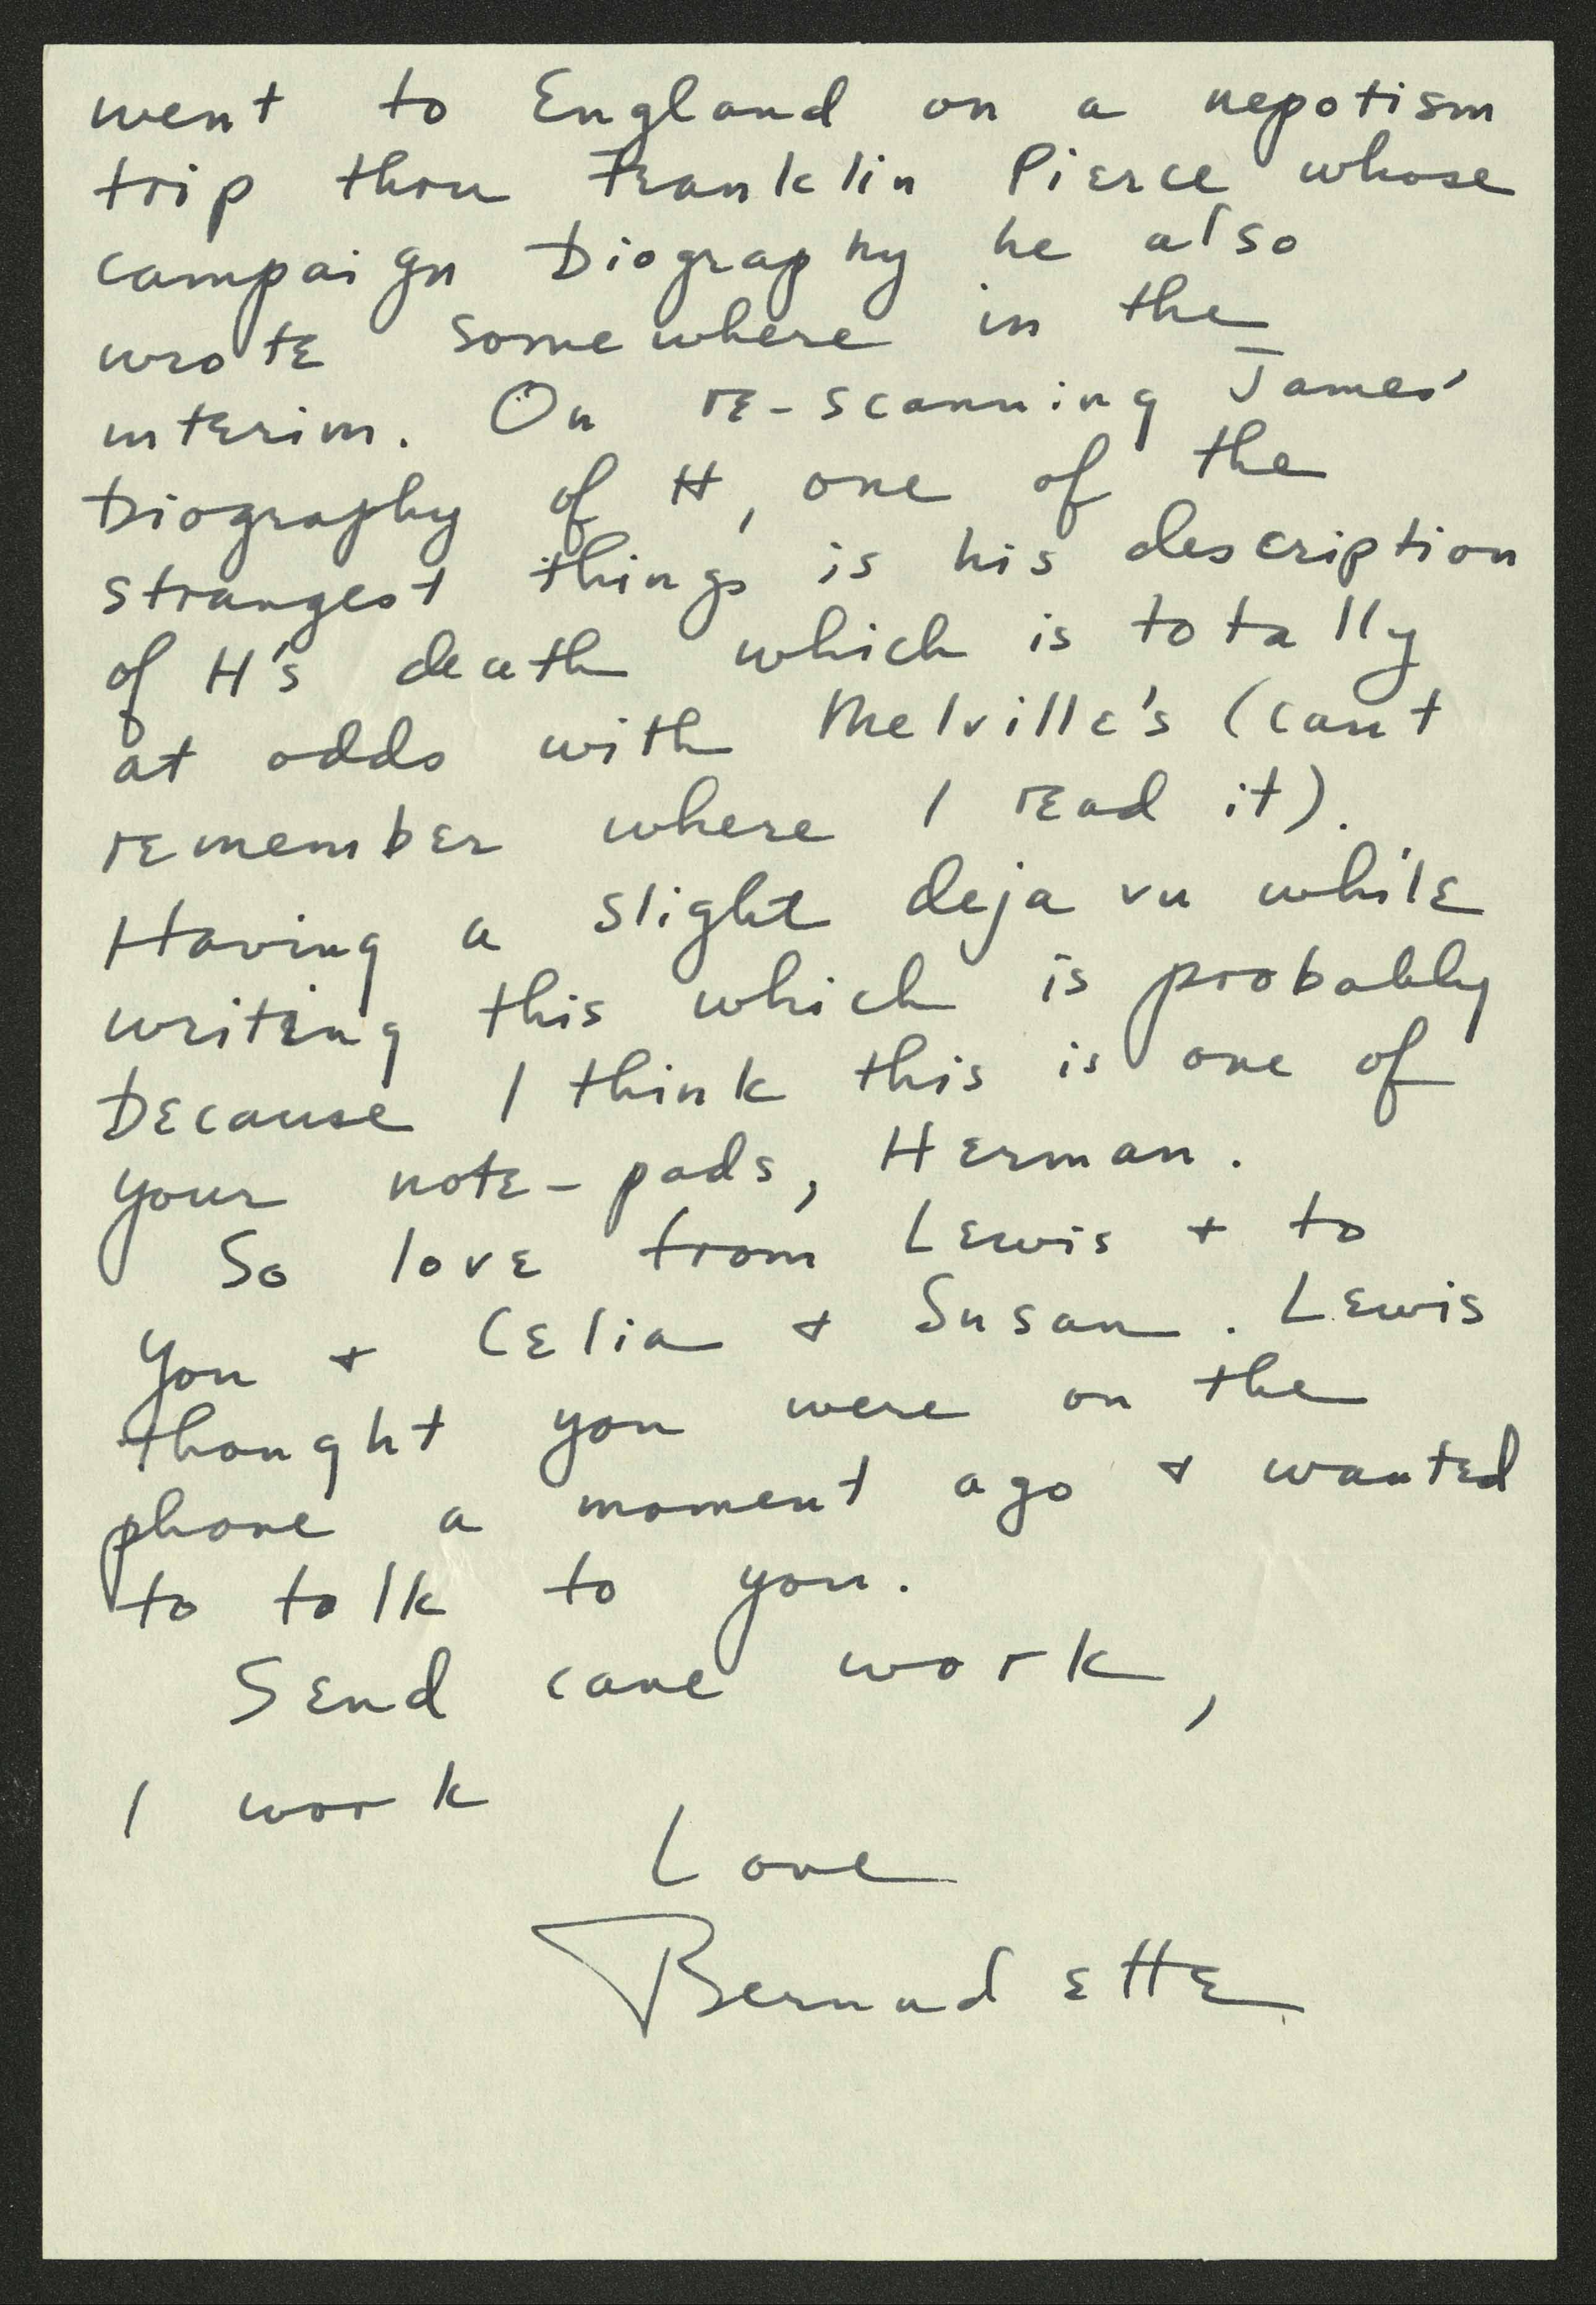 went to England on a nepotism
trip thru Franklin Pierce whose
campaign biography he also
wrote somewhere in the
interim. On re-scanning James'
biography of H, one of the
strangest things is his description
of H's death which is totally
at odds with Melville's (cant
remember where I read it).
Having a slight deja vu while
writing this which is probably
because I think this is one of
your note-pads, Herman.
So love from Lewis + to
you + Celia + Susan. Lewis
thought you were on the
phone a moment ago + wanted
to talk to you.
Send cave work,
I work
Love
Bernadette